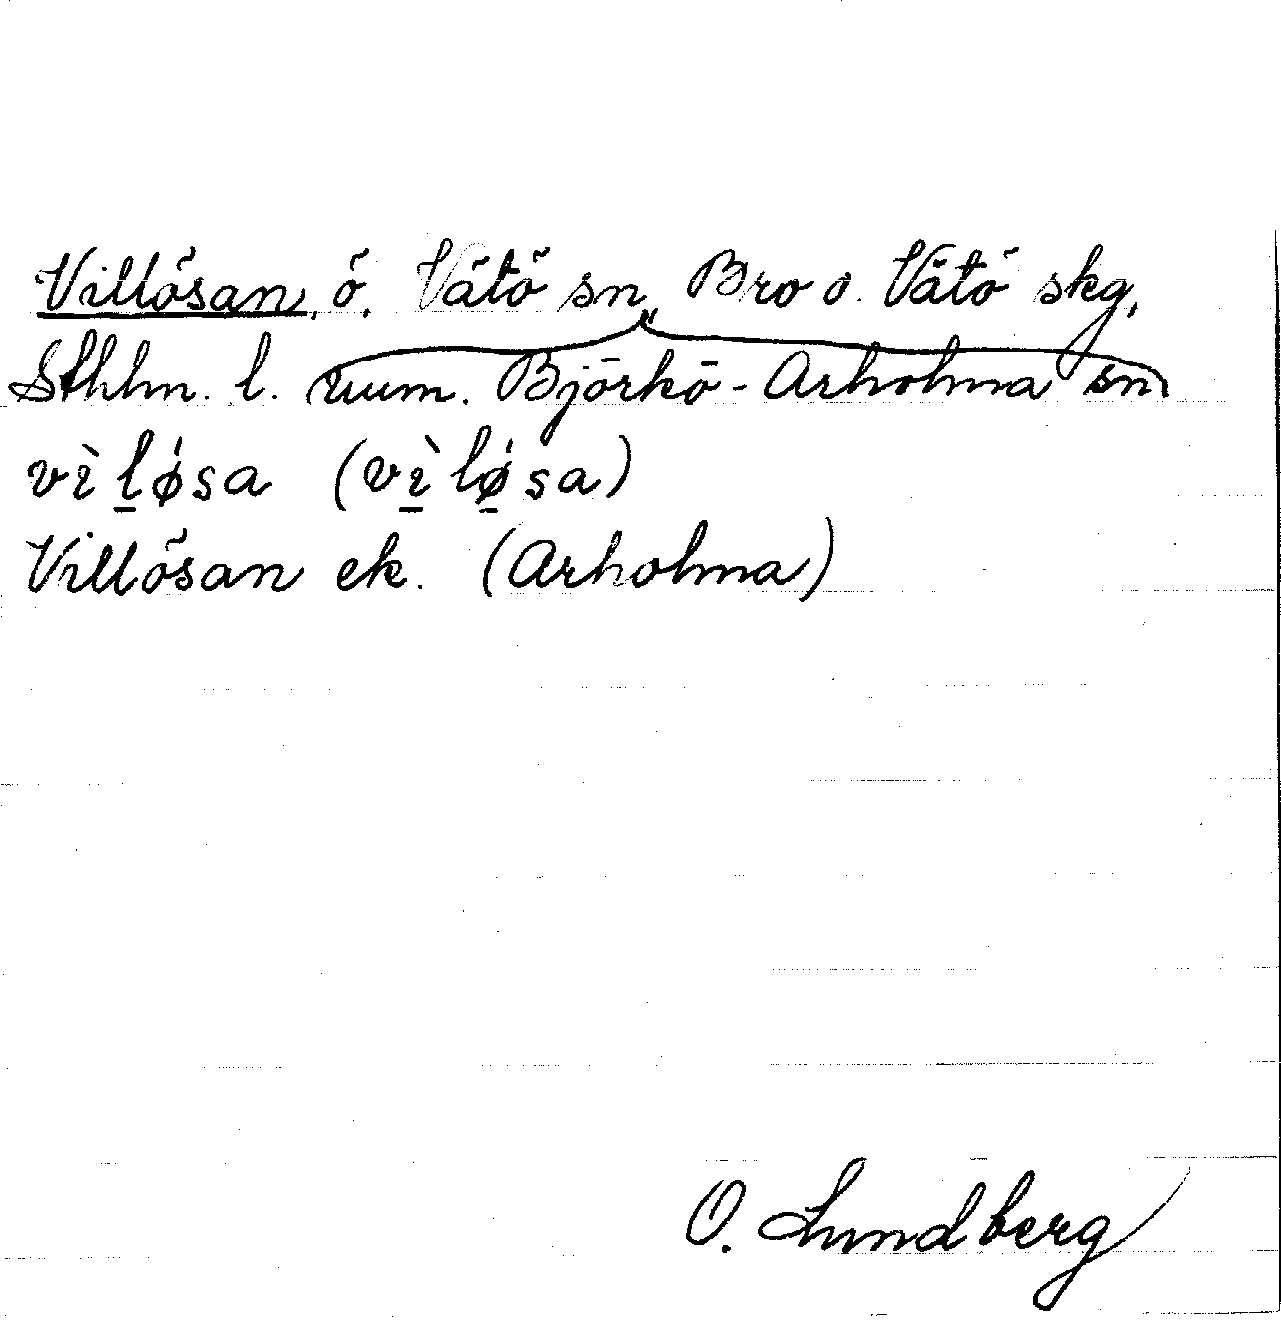 Villösan, ö, Vätö sn, Bro o. Vätö skg,
Sthlm. l. (num. Björkö-Arholma sn)
vìløsa (vìløsa)
Villösan ek. (Arholma)
O. Lundberg